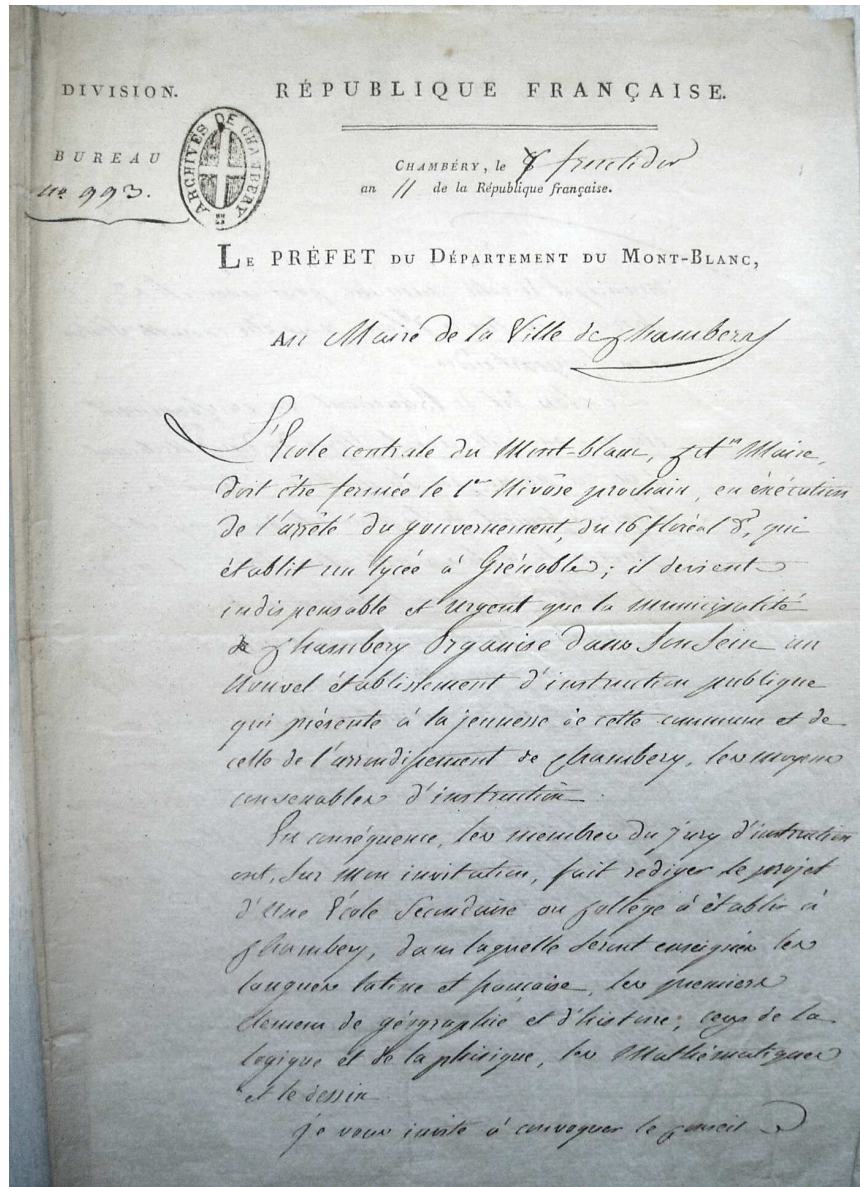 DIVISION.
RÉPUBLIQUE FRANÇAISE.
BUREAU
ARCHIVES DE CHAMBERY
CHAMBÉRY, le 8 fructidor
nº 993.
an 11 de la République française.
LE PRÉFET DU DÉPARTEMENT DU MONT-BLANC,
Au Maire de la Ville de Chambery
L'Ecole centrale du Mont-blanc, Cit.en Maire,
doit être fermée le 1er Nivôse prochain, en éxécution
de l'arrêté du gouvernement, du 16 floréal dr, qui
établit un lycée à Grénoble; il devient
indispensable et urgent que la municipalité
de Chambery Organise dans son sein un
nouvel établissement d'instruction publique
qui présente à la jeunesse de cette commune et de
celle de l'arrondissement de Chambery, les moyens
convenables d'instruction.
En conséquence, les membres du jury d'instruction
ont, sur mon invitation, fait rediger le projet
d'Une École Secondaire ou Collège à établir à
Chambery, dans laquelle seront enseignés les
langues latine et francaise, les premiers
élemens de géographie et d'histoire, ceux de la
logique et de la phisique, les Mathématiques
et le dessin
je vous invite à convoquer le Conseil